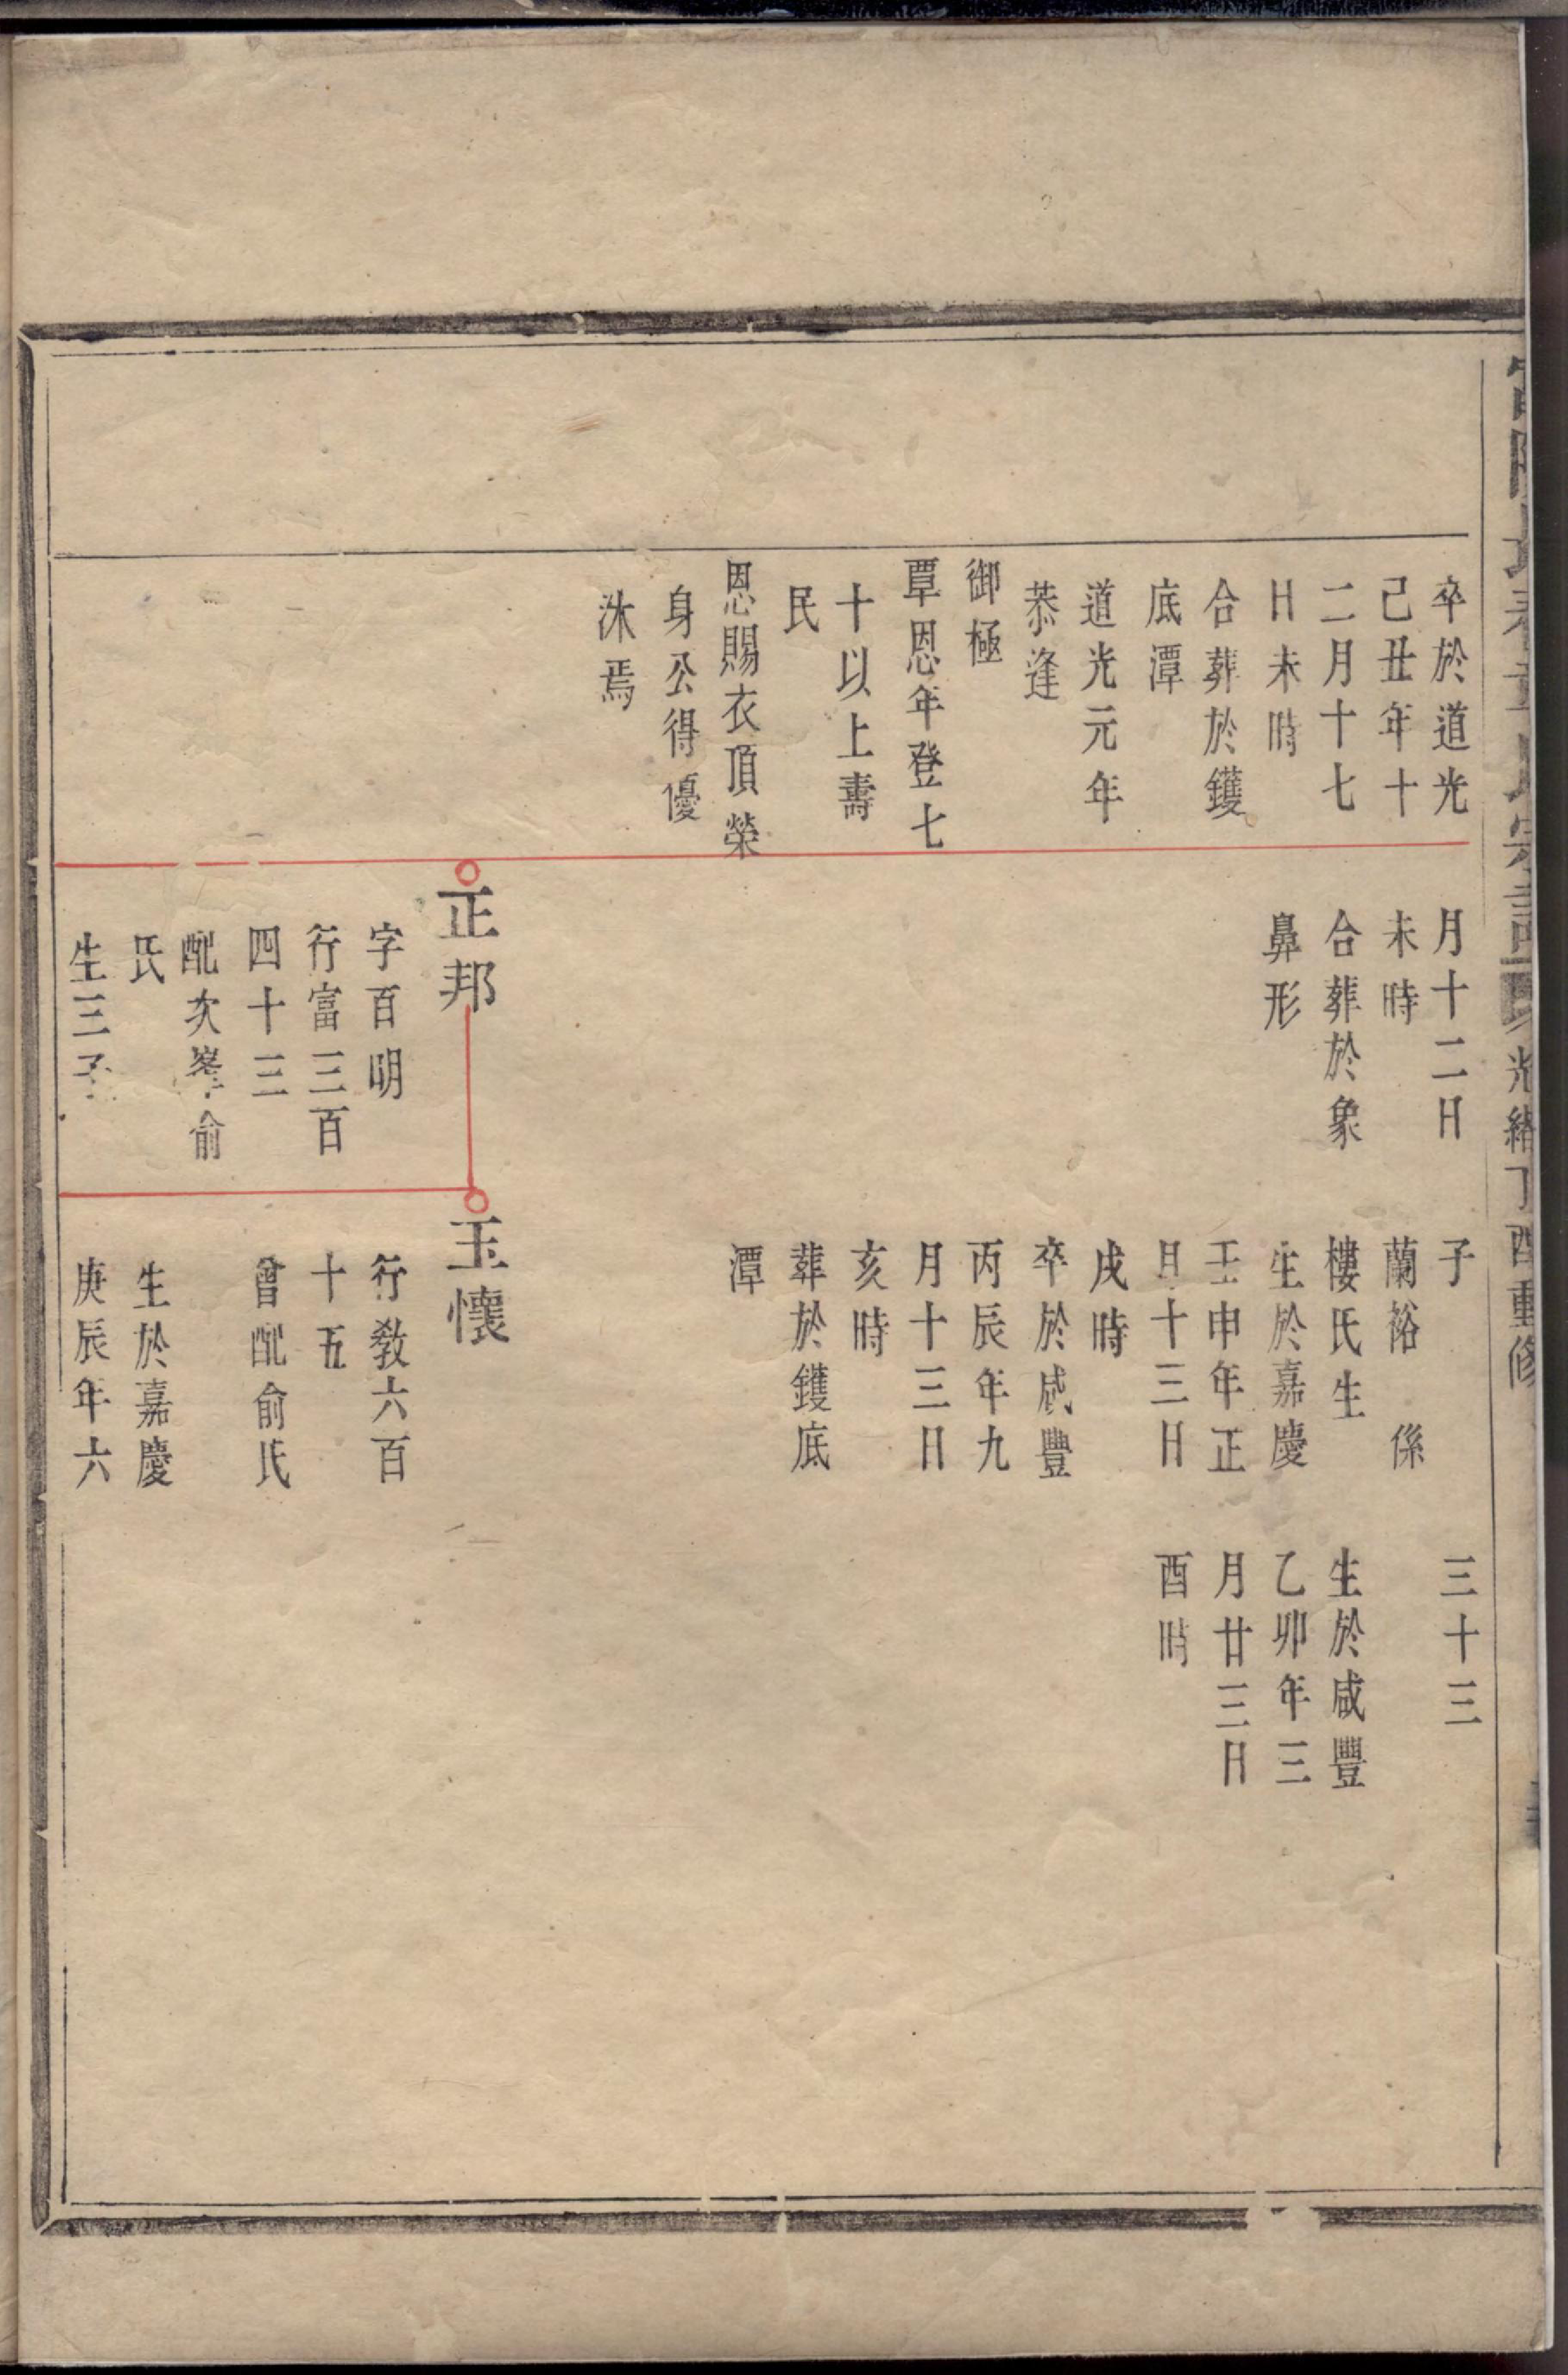 光緒丁酉重修
卒於道光
己丑年十
二月十七
日未時
合葬於鑊
底潭
道光元年
恭逢
御極
覃恩年登七
十以上壽
民
恩賜衣頂榮
身公得優
沐焉
月十二日
未時
合葬於象
鼻形
正邦
字百明
行富三百
四十三
配次峯俞
氏
生三子
子
蘭裕 係
樓氏生
生於嘉慶
壬申年正
月十三日
戌時
卒於咸豐
丙辰年九
月十三日
亥時
葬於鑊底
潭
玉懷
行教六百
十五
曾配俞氏
生於嘉慶
庚辰年六
三十三
生於咸豐
乙卯年三
月廿三日
酉時